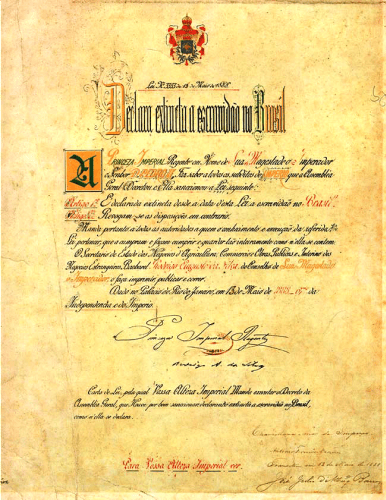 Lei Nº 3353 de 13 de Maio de 1888
Declara extincta a escravidão no Brasil
A PRINCEZA IMPERIAL Regente em Nome de Sua Magestade o Imperador
o Senhor D. PEDRO II, Faz saber a todos os subditos do IMPERIO que a Assembléa
Geral Decretou e Ella sanccionou a Lei seguinte:
Artigo 1º É declarada extincta desde a data d'esta Lei a escravidão no Brasil.
Artigo 2º Revogam-se as disposições em contrario.
Manda portanto a todas as autoridades a quem o conhecimento e execução da referida
Lei pertencer, que a cumpram e façam cumprir e guardar tão inteiramente como n'ella se contem.
O Secretario de Estado dos Negocios d'Agricultura, Commercio e Obras Publicas e Interino dos
Negocios Estrangeiros, Bacharel Rodrigo Augusto da Silva, do Conselho de Sua Magestade
o Imperador, o faça imprimir, publicar e correr.
Dado no Palacio do Rio de Janeiro, em 13 de Maio de 1888, 67º da
Independencia e do Imperio.
Princeza Imperial Regente
Rodrigo A. da Silva
Carta de Lei, pela qual Vossa Alteza Imperial Manda executar o Decreto da
Assembléa Geral, que Houve por bem sanccionar, declarando extincta a escravidão no Brasil,
como n'ella se declara.
Para Vossa Alteza Imperial ver.